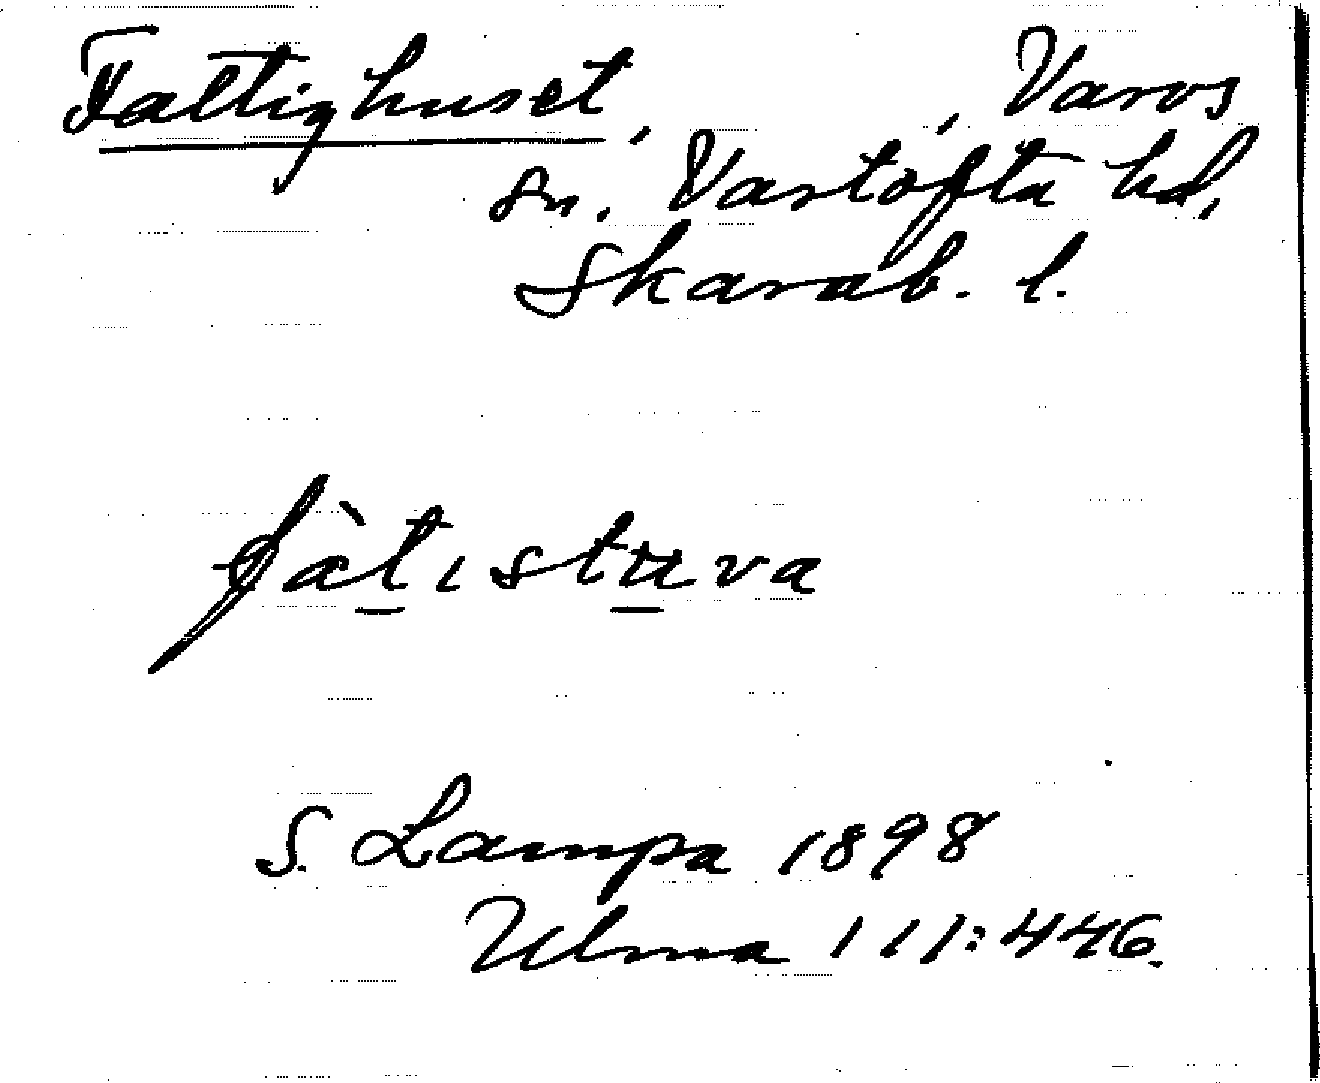 Fattighuset, , Varvs
sn. Vartofta hd,
Skarab. l.
fàtıstuva
S. Lampa 1898
Ulma 111:446.